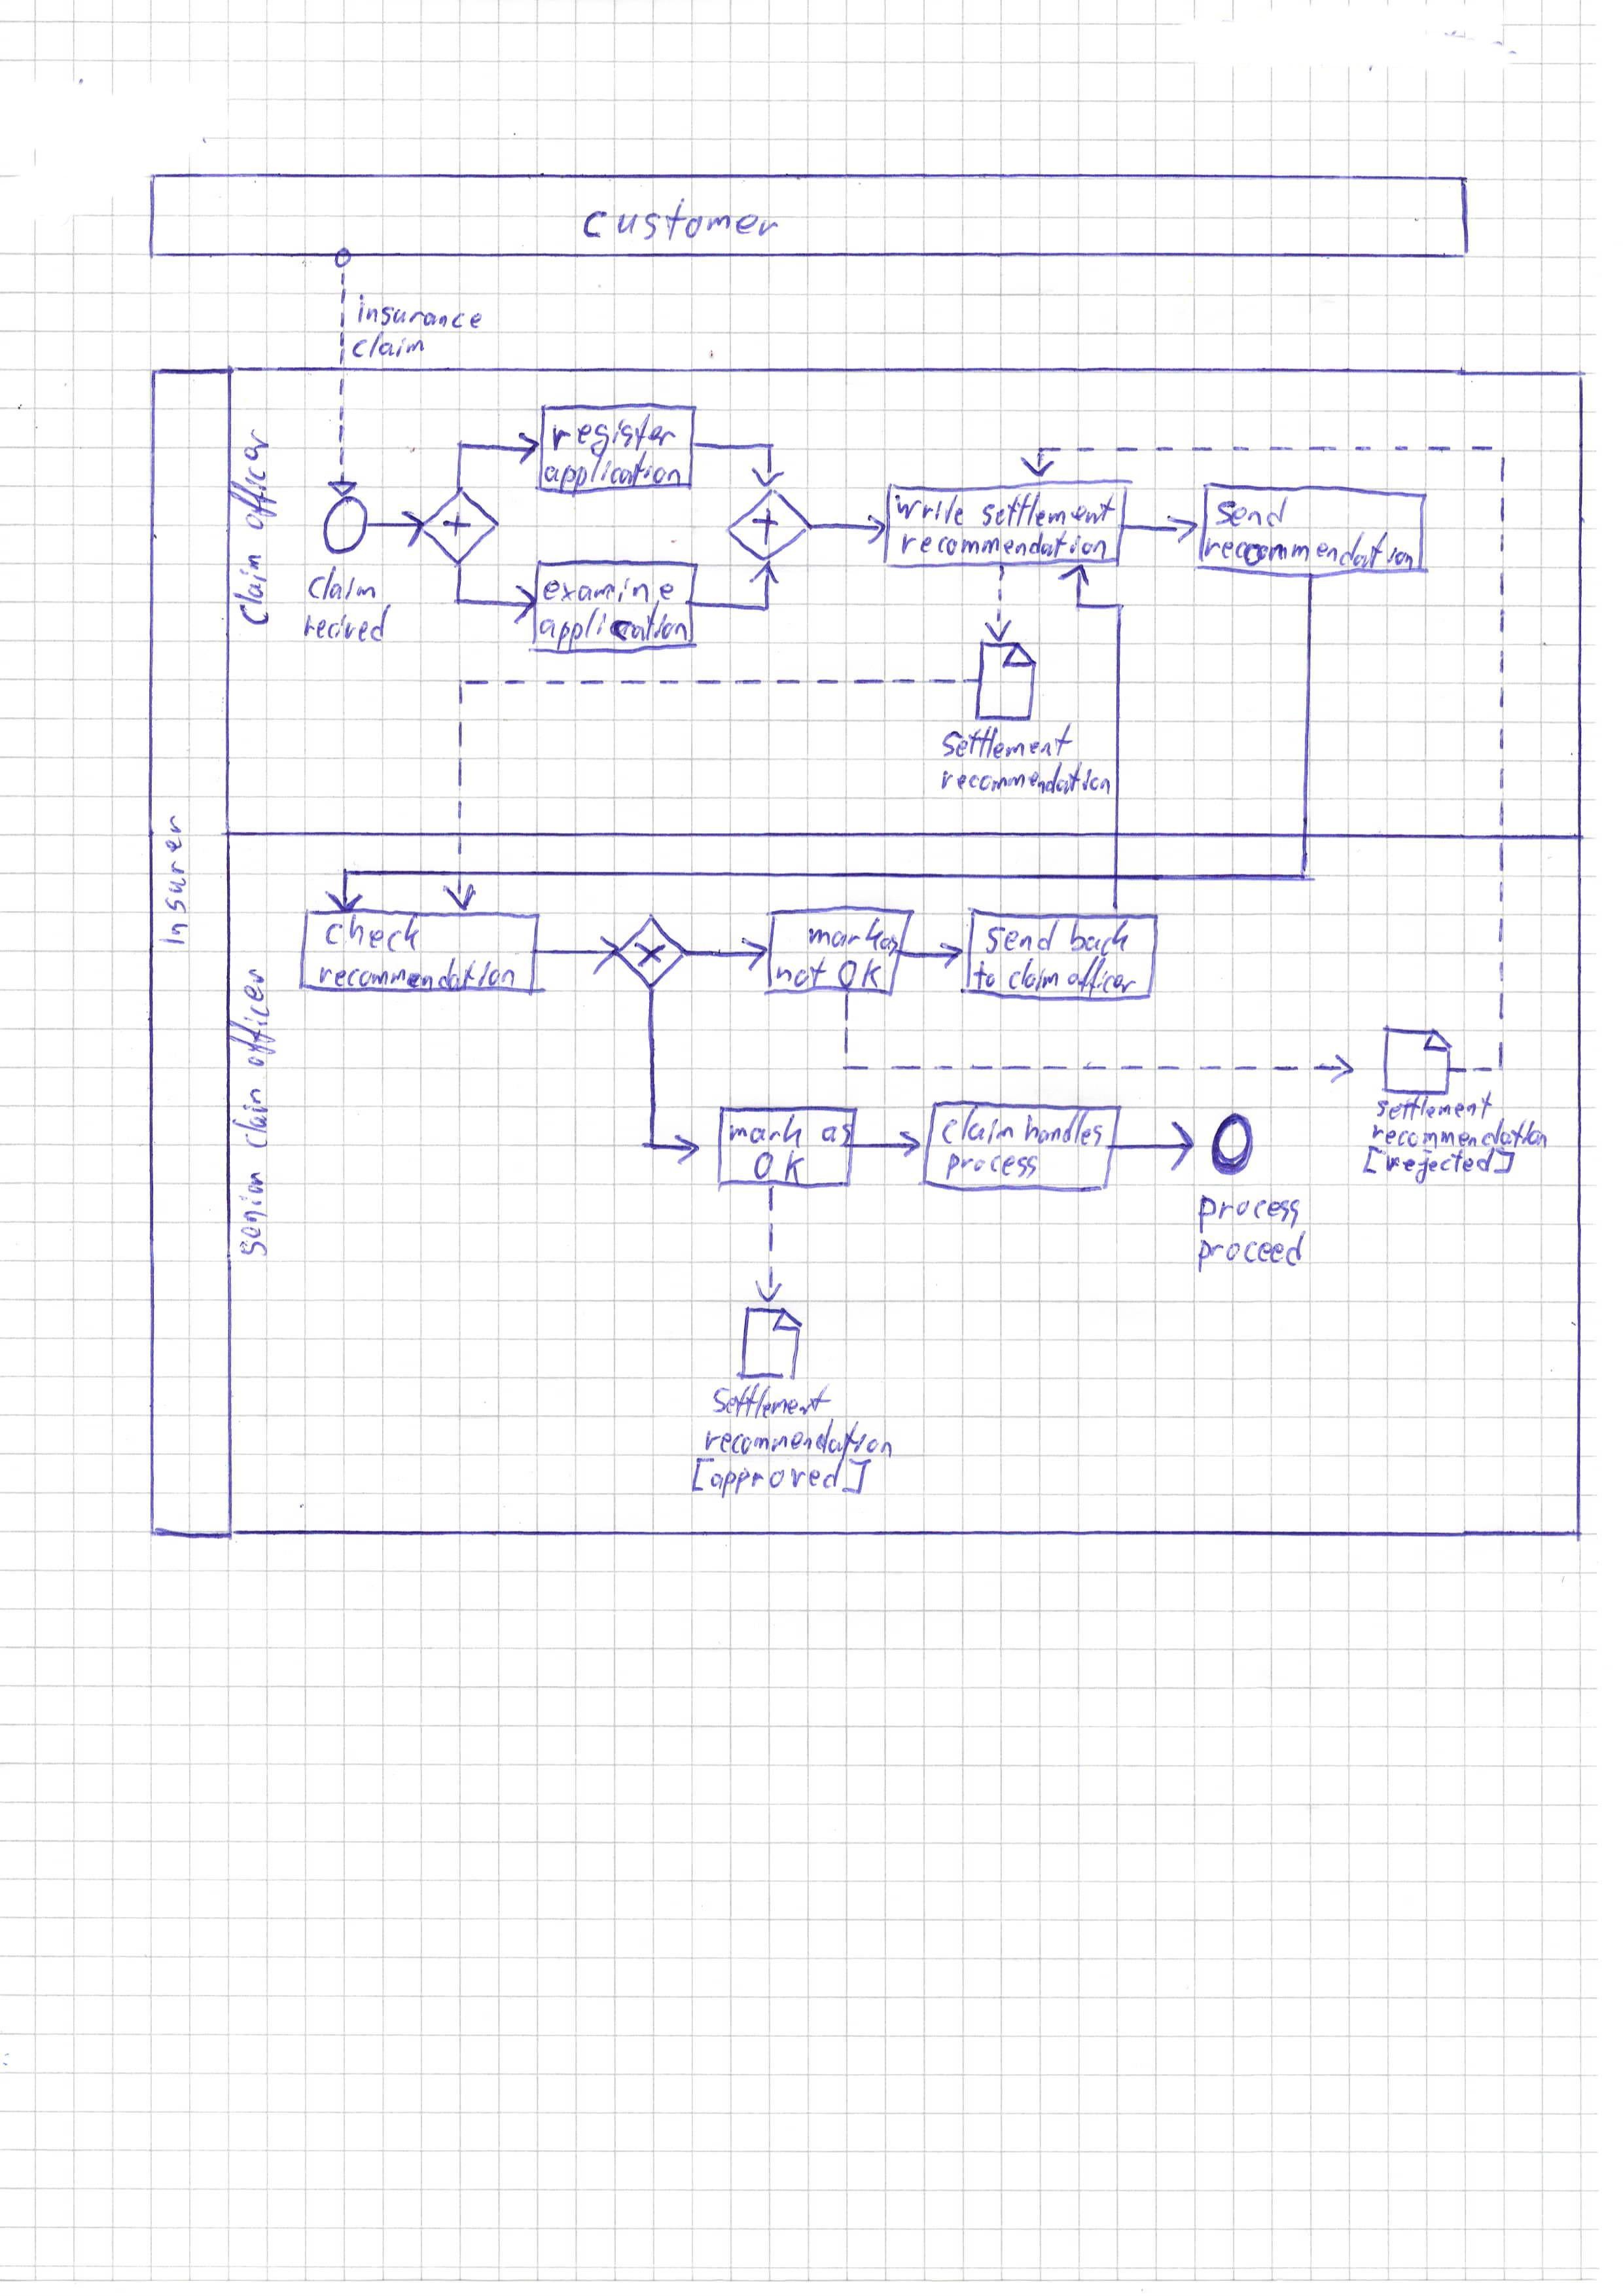 customer
insurance
claim
Insurer
Claim officer
claim
recived
register
application
examine
application
write settlement
recommendation
send
recommendation
settlement
recommendation
senior claim officer
check
recommendation
mark as
not OK
send back
to claim officer
settlement
recommendation
[rejected]
mark as
OK
claim handles
process
process
proceed
settlement
recommendation
[approved]